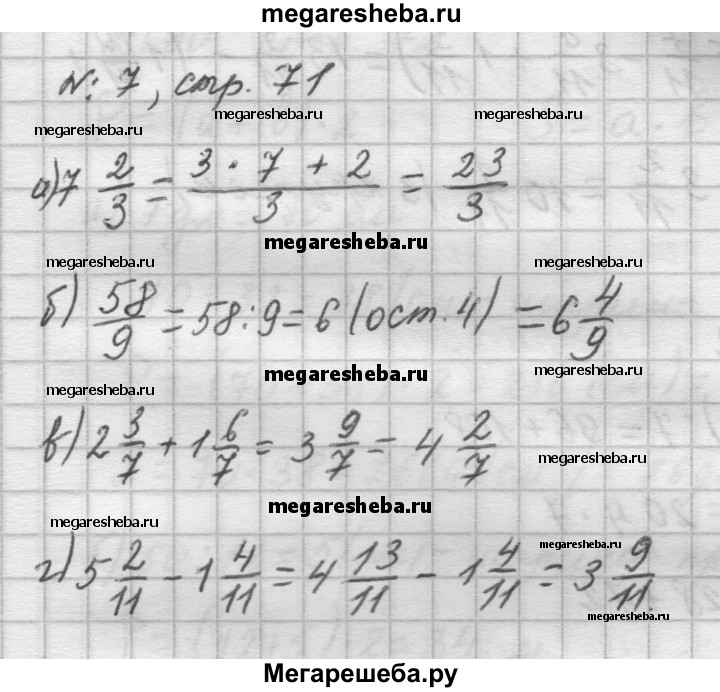 megaresheba.ru
№ 7, стр. 71
megaresheba.ru megaresheba.ru megaresheba.ru
а) 7 2/3 = (3 · 7 + 2)/3 = 23/3
megaresheba.ru
megaresheba.ru megaresheba.ru
б) 58/9 = 58:9 = 6 (ост. 4) = 6 4/9
megaresheba.ru megaresheba.ru
megaresheba.ru
в) 2 3/7 + 1 6/7 = 3 9/7 = 4 2/7
megaresheba.ru
megaresheba.ru
megaresheba.ru
megaresheba.ru
г) 5 2/11 - 1 4/11 = 4 13/11 - 1 4/11 = 3 9/11
megaresheba.ru
Мегарешеба.ру